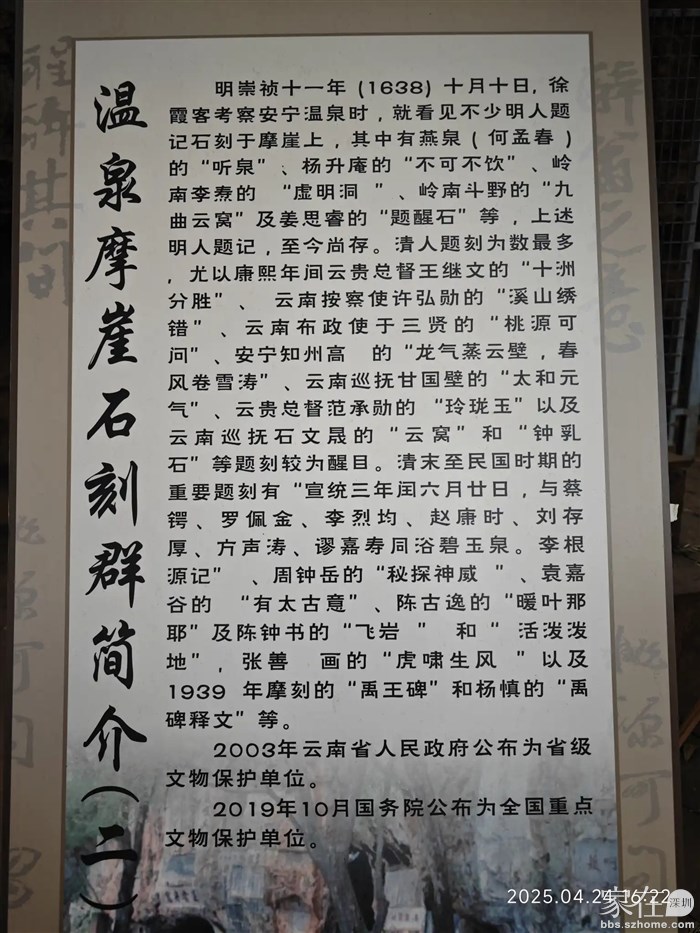 温泉摩崖石刻群简介（二）
明崇祯十一年（1638）十月十日，徐
霞客考察安宁温泉时，就看见不少明人题
记石刻于摩崖上，其中有燕泉（何孟春）
的“听泉”、杨升庵的“不可不饮”、岭
南李焘的 “虚明洞 ”、岭南斗野的“九
曲云窝”及姜思睿的“题醒石”等，上述
明人题记，至今尚存。清人题刻为数最多
，尤以康熙年间云贵总督王继文的“十洲
分胜”、 云南按察使许弘勋的“溪山绣
错”、云南布政使于三贤的“桃源可
问”、安宁知州高 的“龙气蒸云壁，春
风卷雪涛”、云南巡抚甘国壁的“太和元
气”、云贵总督范承勋的 “玲珑玉”以及
云南巡抚石文晟的“云窝”和“钟乳
石”等题刻较为醒目。清末至民国时期的
重要题刻有“宣统三年闰六月廿日，与蔡
锷、罗佩金、李烈均、赵康时、刘存
厚、方声涛、谬嘉寿同浴碧玉泉。李根
源记” 、周钟岳的“秘探神威 ”、袁嘉
谷的 “有太古意”、陈古逸的“暖叶那
耶”及陈钟书的“飞岩 ” 和“ 活泼泼
地”，张善 画的“虎啸生风 ”以及
1939 年摩刻的“禹王碑”和杨慎的“禹
碑释文”等。
2003年云南省人民政府公布为省级
文物保护单位。
2019年10月国务院公布为全国重点
文物保护单位。
桃源可问
2025.04.24 16:22
家在深圳
bbs.szhome.com